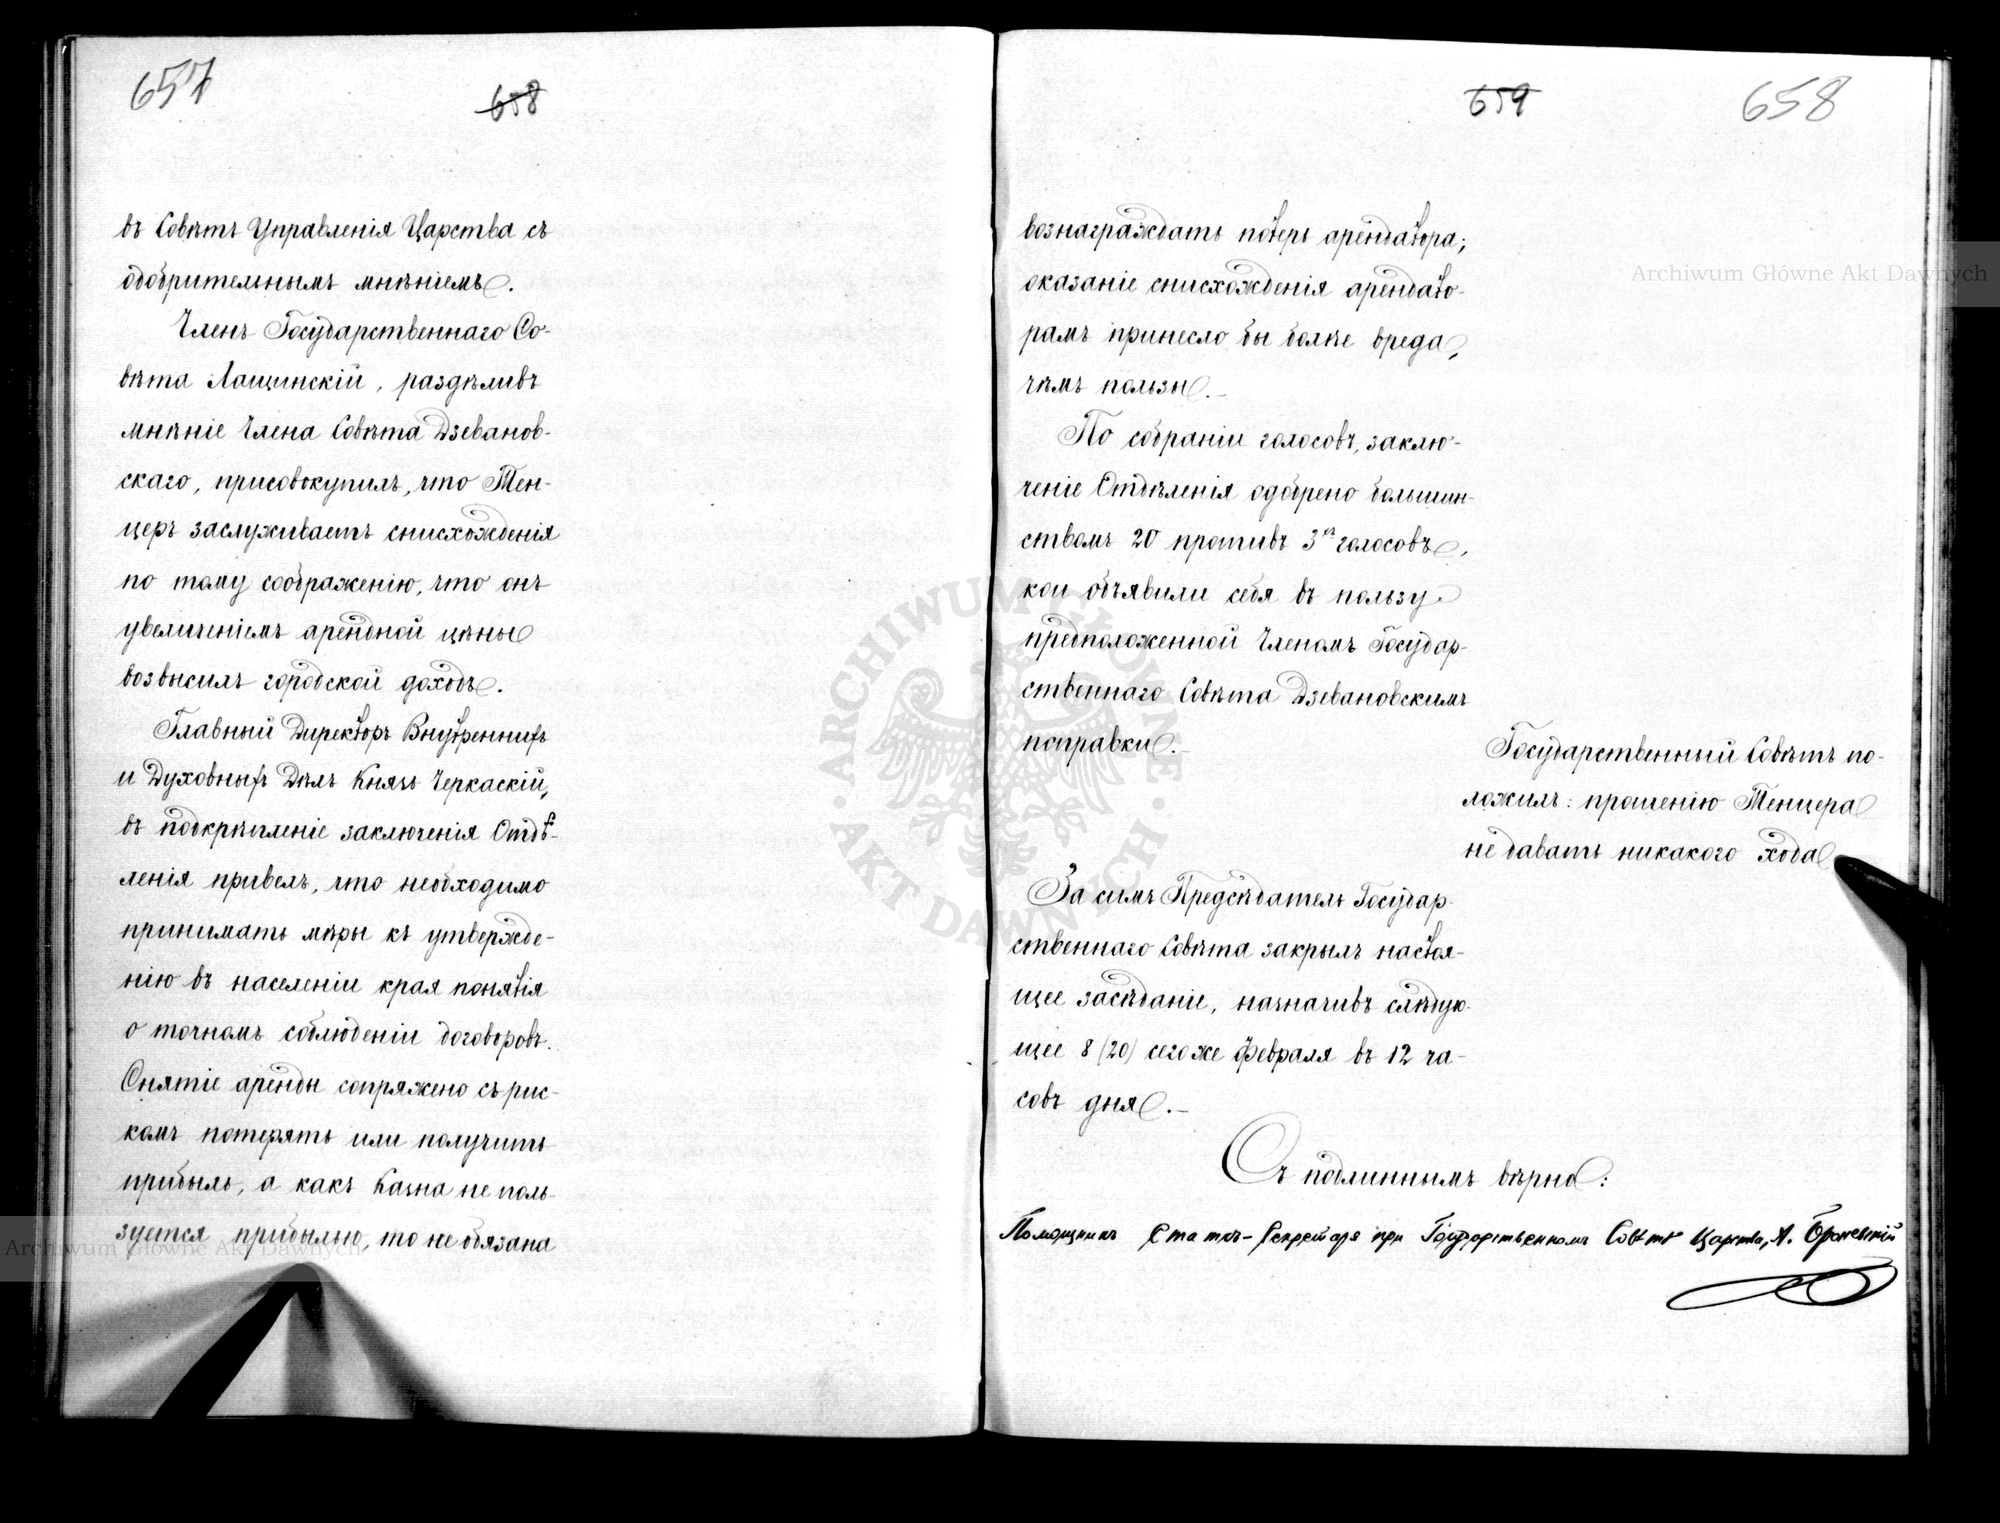 657
658
въ Совѣтъ Управленія Царства съ
одобрительнымъ мнѣніемъ.
Членъ Государственнаго Со-
вѣта Лащинскій, раздѣливъ
мнѣніе Члена Совѣта Дзеванов-
скаго, присовокупилъ, что Тен-
церъ заслуживаетъ снисхожденія
по тому соображенію, что онъ
увеличеніемъ арендной цѣны
возвысилъ городской доходъ.
Главный Директоръ Внутреннихъ
и Духовныхъ Дѣлъ Князь Черкаскій,
въ подкрѣпленіе заключенія Отдѣ-
ленія привелъ, что необходимо
принимать мѣры къ утвержде-
нію въ населеніи края понятія
о точномъ соблюденіи договоровъ.
Снятіе аренды сопряжено съ рис-
комъ потерять или получить
прибыль, а какъ Казна не поль-
зуется прибылью, то не обязана
659
658
вознаграждать потерь арендатора;
оказаніе снисхожденія арендато-
рамъ принесло бы болѣе вреда,
чѣмъ пользы.-
По собраніи голосовъ, заклю-
ченіе Отдѣленія одобрено большин-
ствомъ 20 противъ 3хъ голосовъ,
кои объявили себя въ пользу
предположенной Членомъ Государ-
ственнаго Совѣта Дзевановскимъ
поправки.-
Государственный Совѣтъ по-
ложилъ: прошенію Тенцера
не давать никакого хода
За симъ Предсѣдатель Государ-
ственнаго Совѣта закрылъ настоя-
щее засѣданіе, назначивъ слѣдую-
щее 8 (20) сего же Февраля въ 12 ча-
совъ дня.-
Съ подлиннымъ вѣрно:
Помощникъ Статсъ-Секретаря при Государственномъ Совѣтѣ Царства, А.
Archiwum Główne Akt Dawnych
Archiwum Główne Akt Dawnych
ARCHIWUM GŁÓWNE · AKT DAWNYCH ·